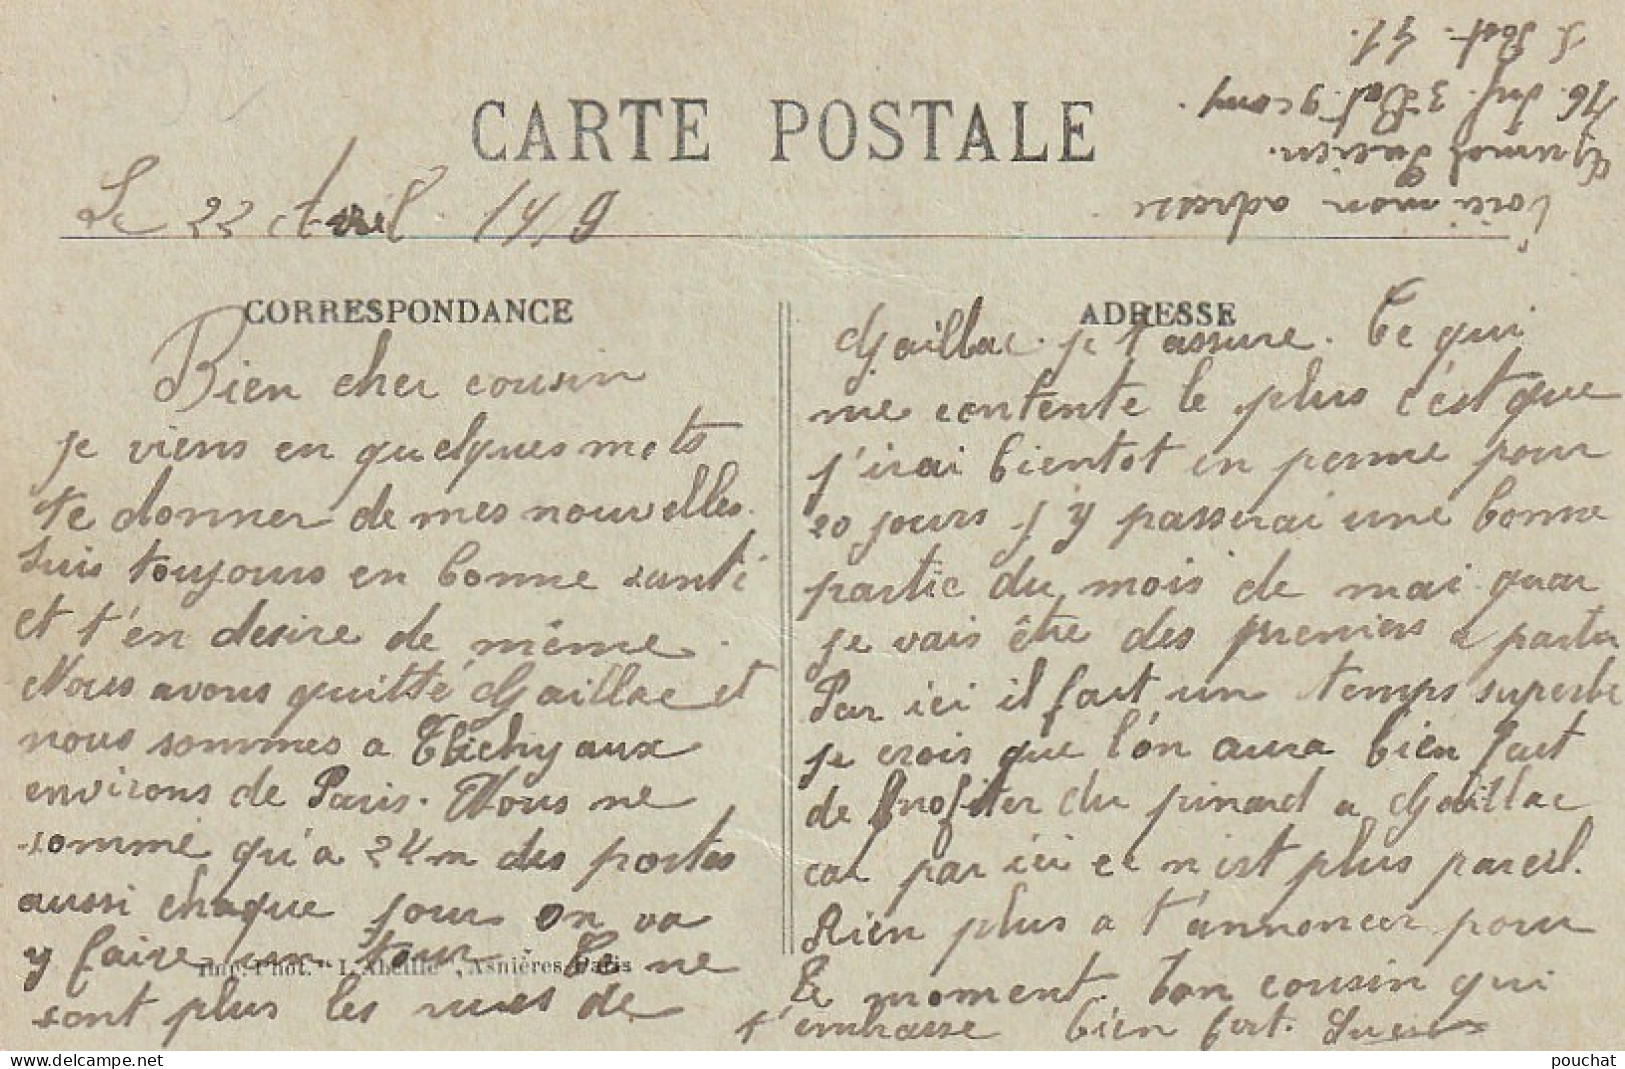 CARTE POSTALE
Le 22 Avril 1919
Voici mon adresse
Lucien.
76. Inf. 3e Bat. 9 com.
S. Post. 41.
CORRESPONDANCE
Bien cher cousin
je viens en quelques mots
te donner de mes nouvelles.
suis toujours en bonne santé
et t'en desire de même.
Nous avons quitté Gaillac et
nous sommes a Clichy aux
environs de Paris. Nous ne
somme qu'a 24m des portes
aussi chaque jour on va
y faire un tour. Ce ne
sont plus les rues de
Imp. Phot. "L'Abeille", Asnières-Paris
ADRESSE
Gaillac. je t'assure. Ce qui
me contente le plus c'est que
j'irai bientot en perme pour
20 jours j'y passerai une bonne
partie du mois de mai quar
je vais être des premiers a partir
Par ici il fait un temps superbe
je crois que l'on aura bien fait
de profiter du pinard a Gaillac
car par ici ce n'est plus pareil.
Rien plus a t'annoncer pour
le moment. Ton cousin qui
t'embrasse bien fort. Lucien
pouchat